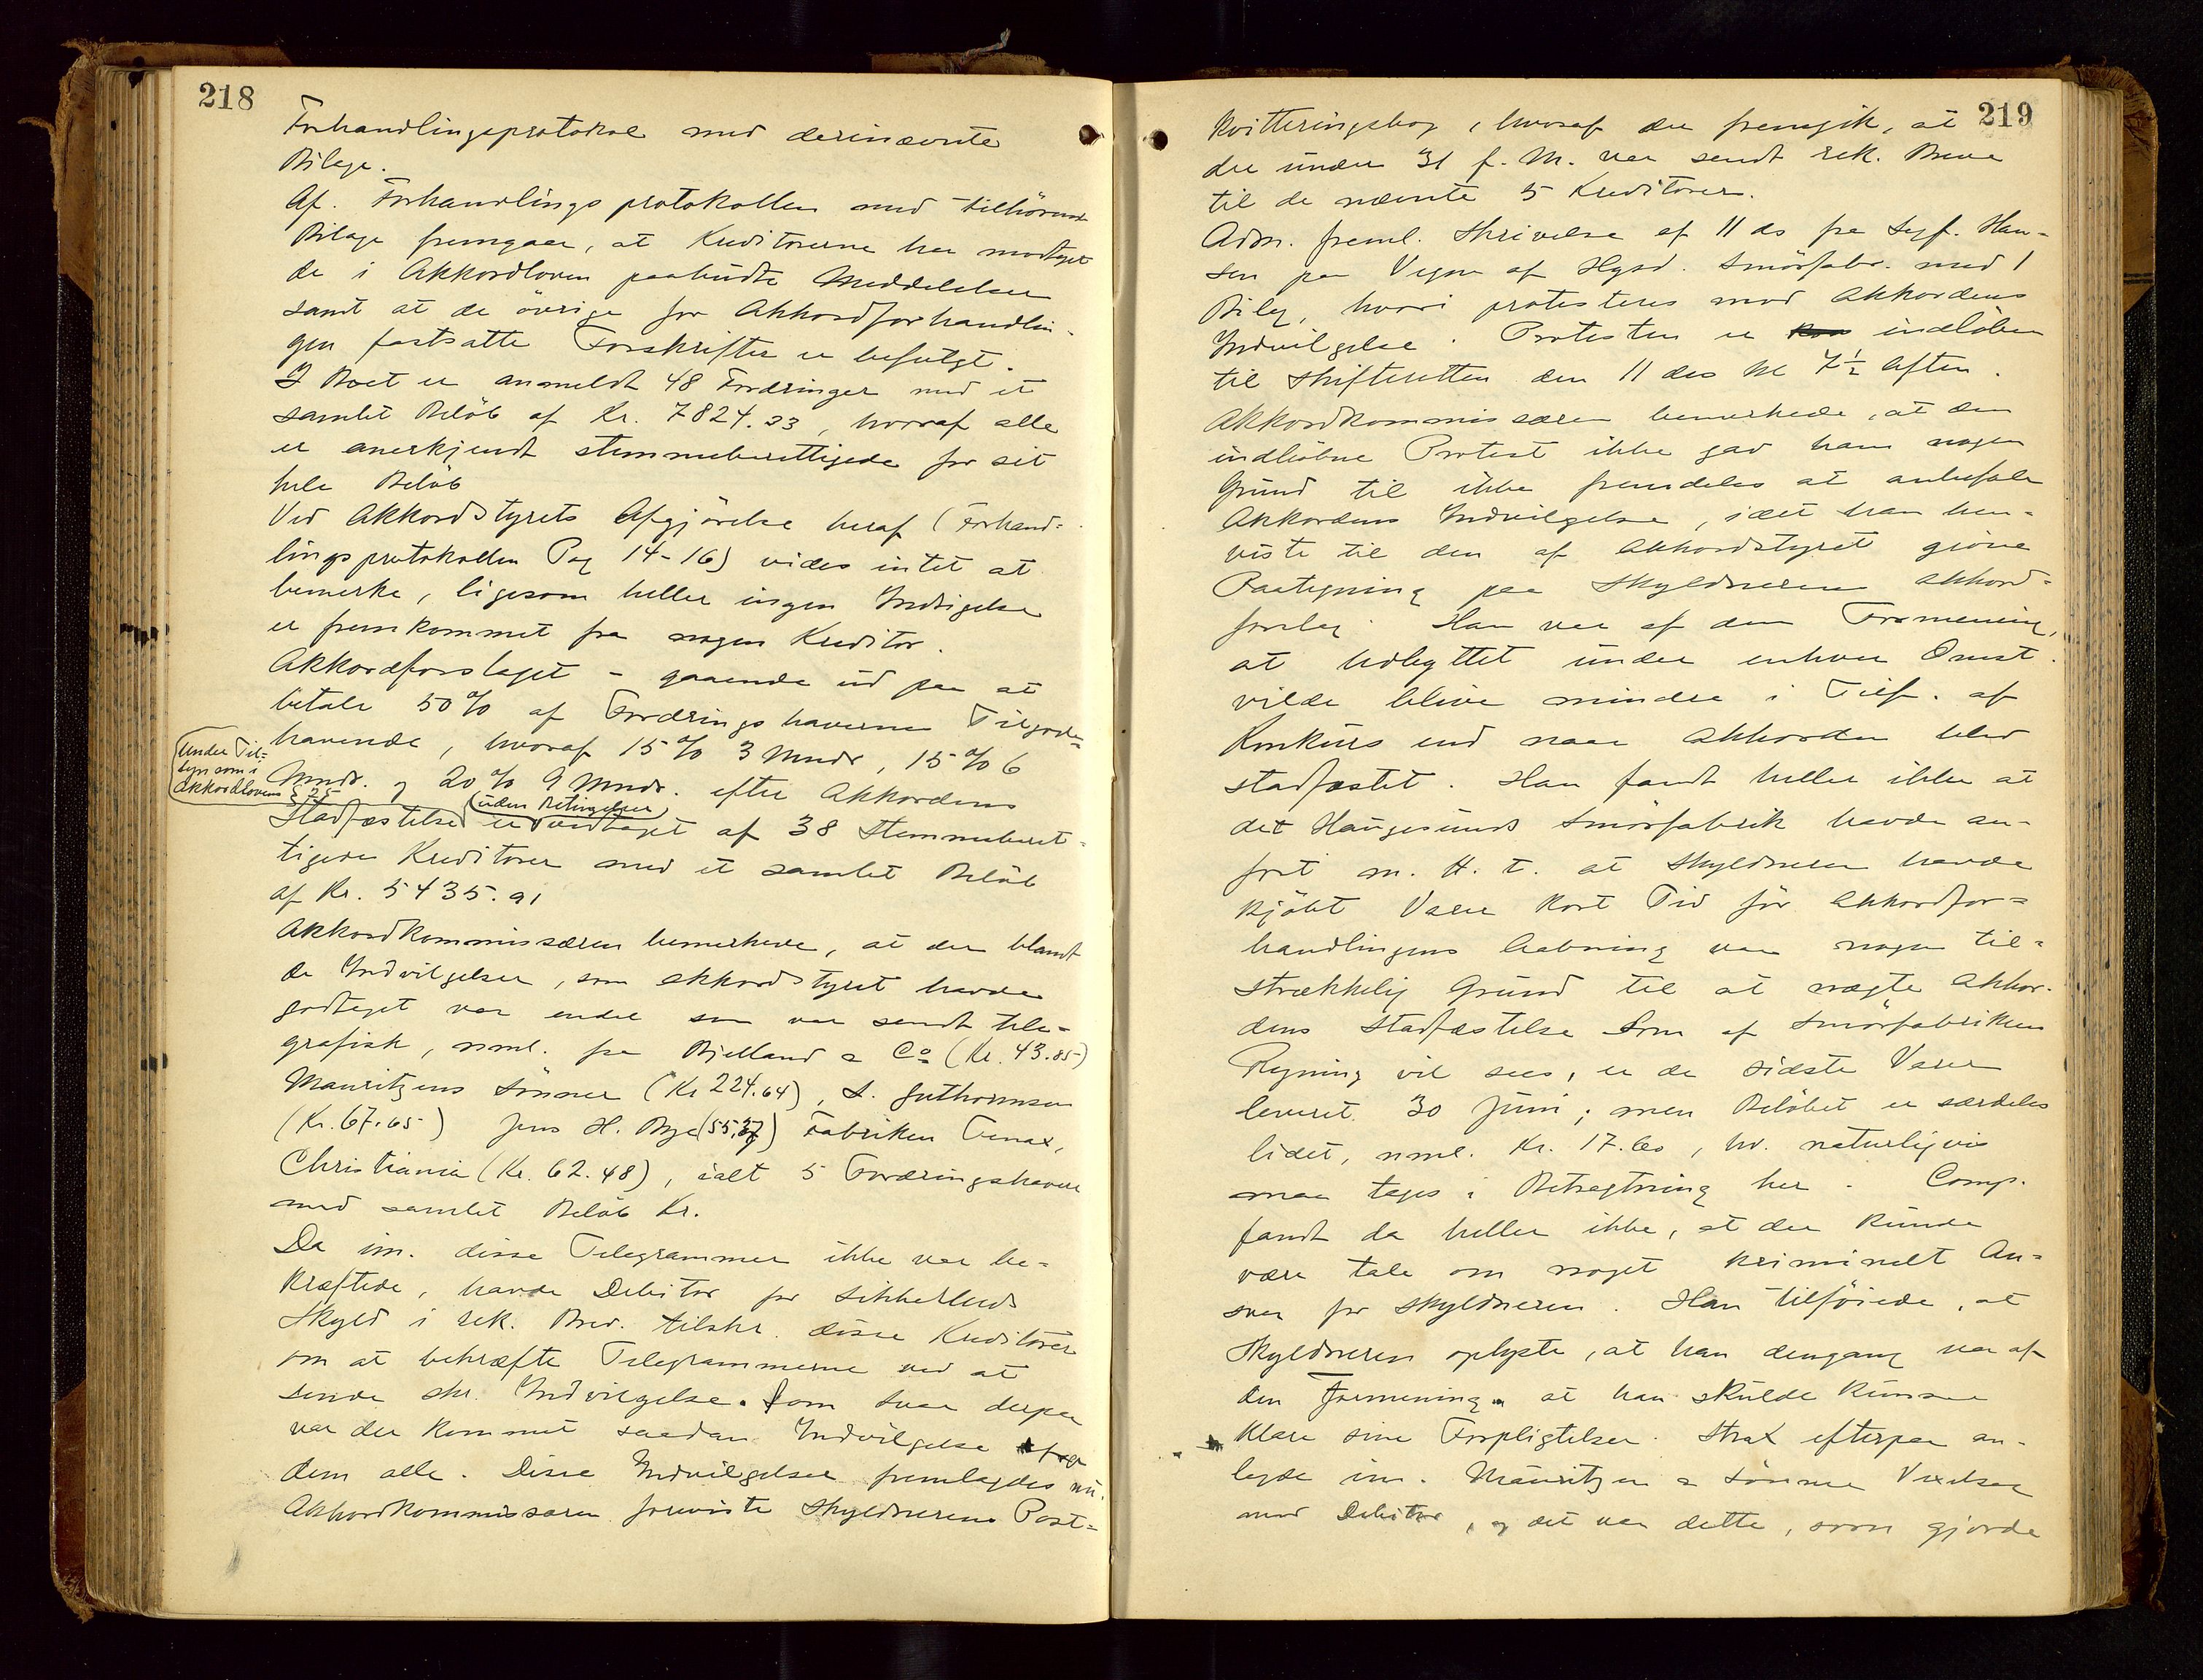 218
Forhandlingsprotokol med derinævnte
Bilage.
Af. Forhandlingsprotokollen med tilhörende
Bilage fremgaar, at Kreditorerne har modtaget
de i Akkordloven paabudte Meddelelser
samt at de övrige for Akkordforhandlin-
gen fastsatte Forskrifter er befulgt.
I Boet er anmeldt 48 Fordringer med et
samlet Belöb af Kr. 7824.33, hvoraf alle
er anerkjendt stemmeberettigede for sit
hele Belöb
Ved Akkordstyrets Afgjörelse heraf (Forhand-
lingsprotokollen Pag 14-16) vides intet at
bemerke, ligesom heller ingen Indsigelse
er fremkommet fra nogen Kreditor.
Akkordforslaget - gaaende ud paa at
betale 50% af Fordringshavernes Tilgode-
havende, hvoraf 15% 3 Mndr, 15% 6
Mndr. og 20% 9 Mndr. efter Akkordens
Under Til-
syn som i
Akkordlovens § 25
(uden Betingelser)
Stadfæstelse er vedtaget af 38 Stemmeberet-
tigede Kreditorer med et samlet Belöb
af Kr. 5435.91
Akkordkommissæren bemerkede, at der blandt
de Indvilgelser, som akkordstyret havde
godtaget var endel som var sendt tele-
grafisk, nml. fra Bjelland & Co (Kr. 43.85)
Mauritzens Sönner (Kr 224.64), S. Guthormsen
(Kr. 67.65) Jens H. Bye (55,37) Fabriken Tenax,
Christiania (Kr. 62.48), ialt 5 Fordringshavere
med samlet Belöb Kr.
Da im. disse Telegrammer ikke var be-
kræftede, havde Debitor for Sikkerheds
Skyld i rek. Brev. tilskr. disse Kreditorer
om at bekræfte Telegrammerne ved at
sende skr. Indvilgelse. Som Svar derpaa
var der kommet saadan Indvilgelse fra
dem alle. Disse Indvilgelser fremlagdes nu.
Akkordkommissæren foreviste Skyldnerens Post-
219
Kvitteringsbog, hvoraf der fremgik, at
der under 31 f. M. var sendt rek. Breve
til de nævnte 5 Kreditorer.
Adm. freml. Skrivelse af 11 ds fra Sagf. Han-
sen paa Vegne af Hgsd. Smörfabr. med 1
Bilag, hvori protesteres mod Akkordens
Indvilgelse. Protesten er indlöben
til Skifteretten den 11 des Kl 7½ Aften.
Akkordkommissæren bemerkede, at den
indlöbne Protest ikke gav ham nogen
Grund til ikke fremdeles at anbefale
Akkordens Indvilgelse, idet han hen-
viste til den af Akkordstyret gjorte
Paategning paa Skyldnerens akkord-
forslag. Han var af den Formening,
at Udbyttet under enhver Omst.
vilde blive mindre i Tilf. af
Konkurs end naar Akkorden blev
stadfæstet. Han fandt heller ikke at
det Haugesunds Smörfabrik havde an-
fört m. H. t. at Skyldneren havde
kjöbt Varer kort Tid för Akkordfor-
handlingens Aabning var nogen til-
strækkelig Grund til at nægte Akkor-
dens Stadfæstelse Som af Smörfabrikens
Regning vil sees, er de sidste Varer
leveret 30 Juni; men Belöbet er særdeles
lidet, nml. Kr. 17.60, hv. naturligvis
maa tages i Betragtning her. Comp.
fandt da heller ikke, at der kunde
være tale om noget kriminelt An-
svar for Skyldneren. Han tilföiede, at
Skyldneren oplyste, at han dengang var af
den Formening, at han skulde kunne
klare sine Forpligtelser. Strax efterpaa an-
lagde im. Mauritzen & Sönner Vexelsag
mod Debitor, og det var dette, som gjorde